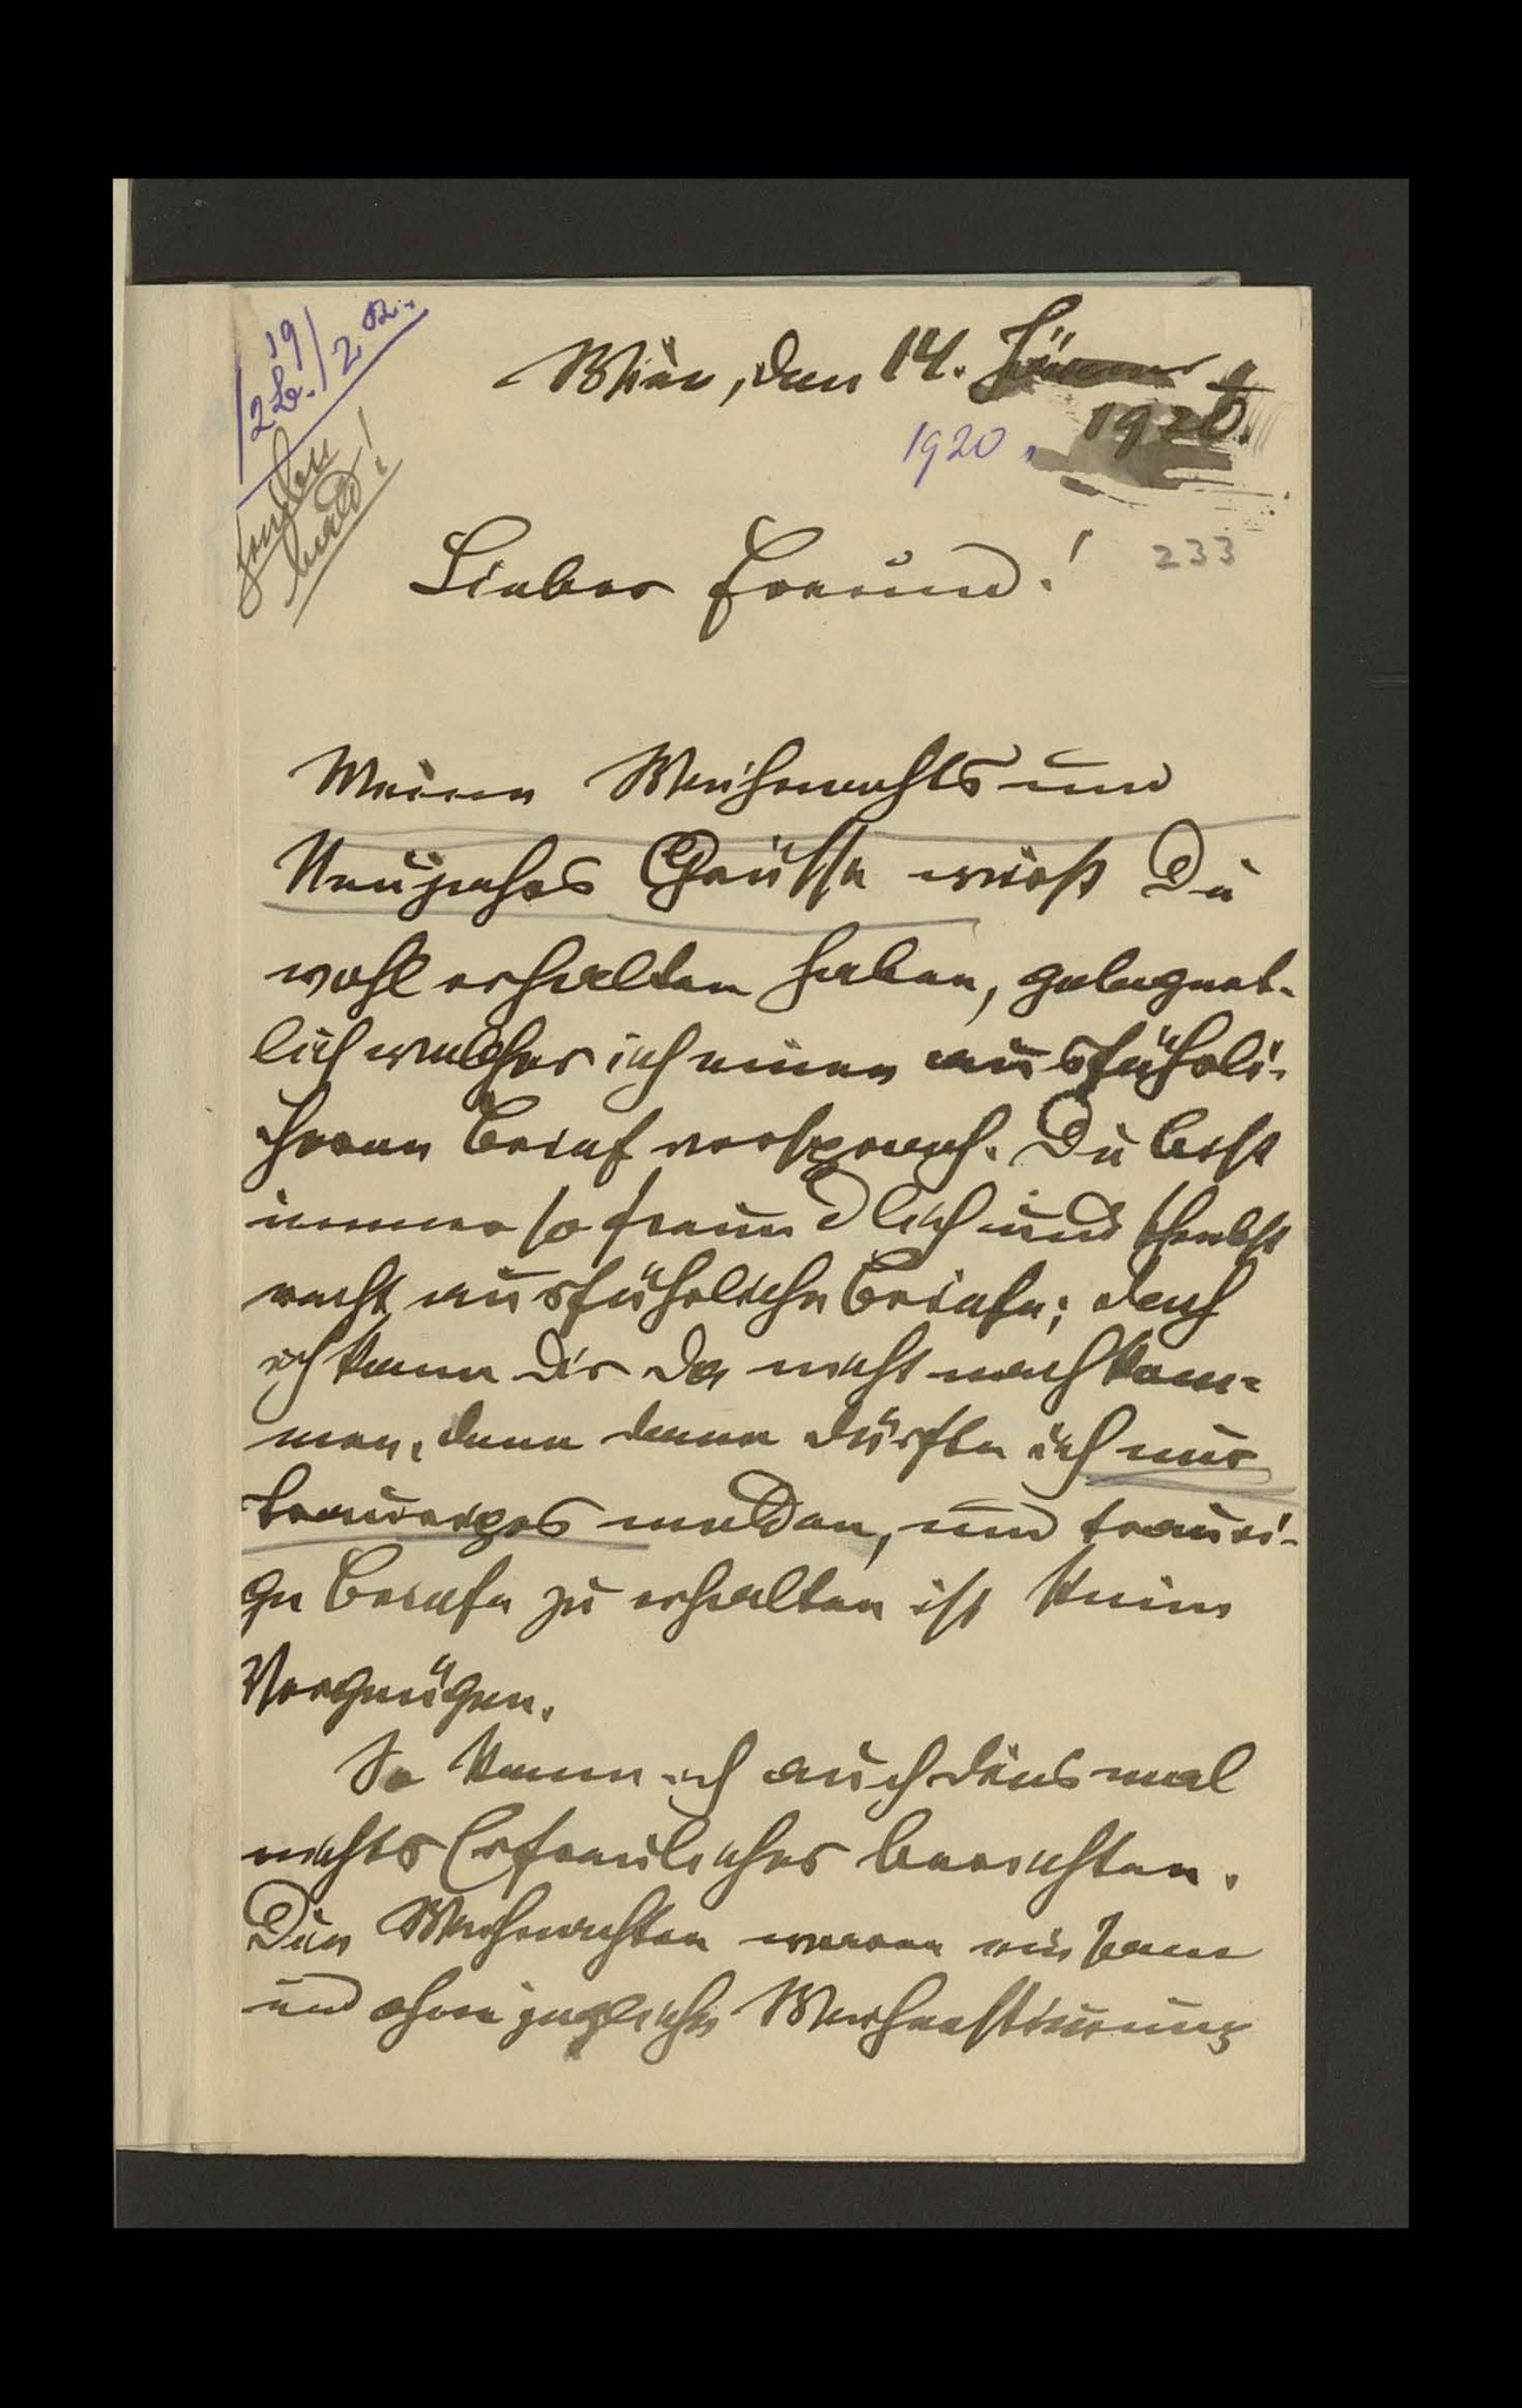 19/2 Le. / 2 a.
senden
bald!
Wien, den 14. Jänner
1920.
1920,
233
Lieber Freund!
Meine Weihnachts und
Neujahrs Grüsse wirst Du
wohl erhalten haben, gelegent-
lich welcher ich einen ausführli-
cheren Brief versprach. Du bist
immer so freundlich und schreibst
recht ausführliche Briefe; doch
ich kann Dir da nicht nachkom-
men, denn dann dürfte ich nur
trauriges melden, und trauri-
ge Briefe zu erhalten ist kein
Vergnügen.
So kann ich auch diesmal
nichts Erfreuliches berichten.
Die Weihnachten waren einsam
und ohne jegliche